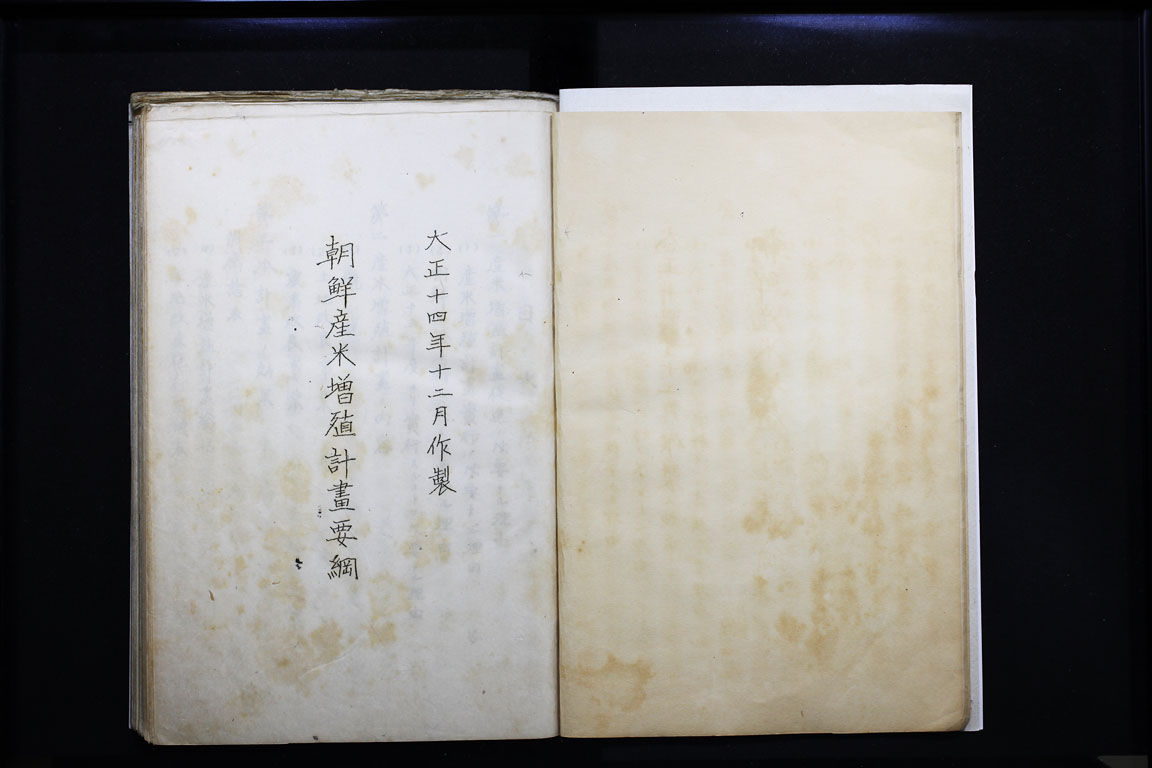 大正十四年十二月作製
朝鮮産米増殖計畫要綱